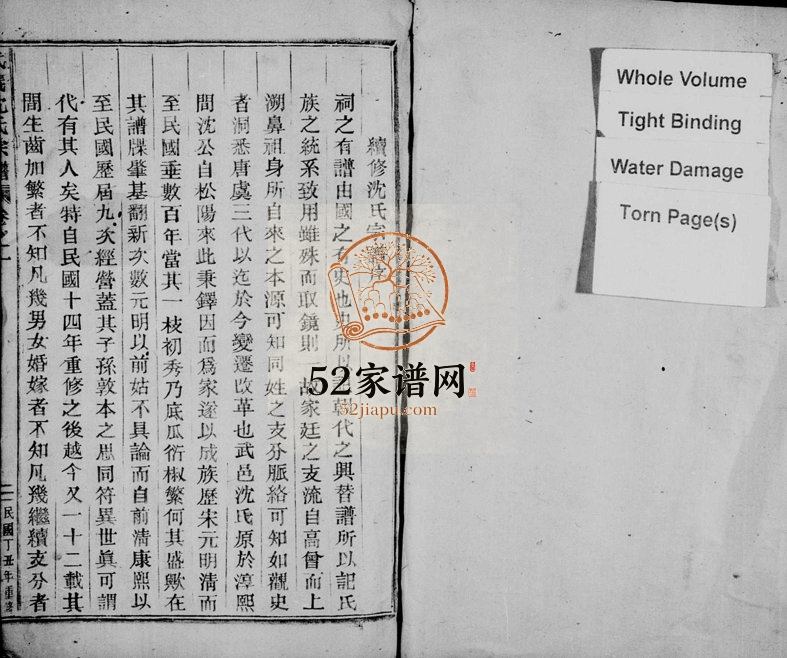 續修沈氏宗譜序
祠之有譜由國之有史也史所以 朝代之興替譜所以記氏
族之統系致用雖殊而取鏡則一故家廷之支流自高曾而上
溯鼻祖身所自來之本源可知同姓之支分脈絡可知如觀史
者洞悉唐虞三代以迄於今變遷改革也武邑沈氏原於淳熙
間沈公自松陽來此秉鐸因而爲家遂以成族歷宋元明淸而
至民國垂數百年當其一枝初秀乃底瓜衍椒繁何其盛歟在
其譜牒肇基翻新次數元明以前姑不具論而自前清康熙以
至民國歷屆九次經營蓋其子孫敦本之思同符異世眞可謂
代有其人矣特自民國十四年重修之後越今又一十二載其
間生齒加繁者不知凡幾男女婚嫁者不知凡幾繼續支分者
沈氏宗譜 卷之一
民國丁丑年重修
52家谱网
52jiapu.com
Whole Volume
Tight Binding
Water Damage
Torn Page(s)